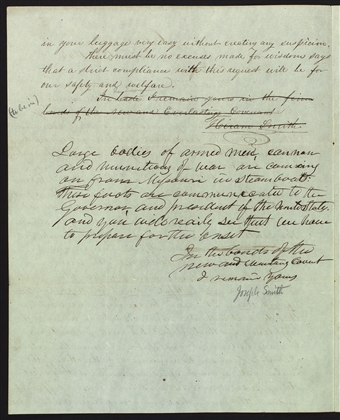 in your luggage very easy without creating any suspicion.
There must be no excuses made for wisdom says
that a strict compliance with this request will be for
our safety and welfare.
In haste I remain yours in the firm
bonds of the new and Everlasting Covenant
Hiram Smith.
Large bodies of armed men, cannon
and munitions of war are coming
on from Missouri in steamboats.
These facts are communicated to the
Governor, and president of the United States
and you will readily see that we have
to prepare for the onset
In the bonds of the
new and everlasting Covenant
I remain yours
Joseph Smith